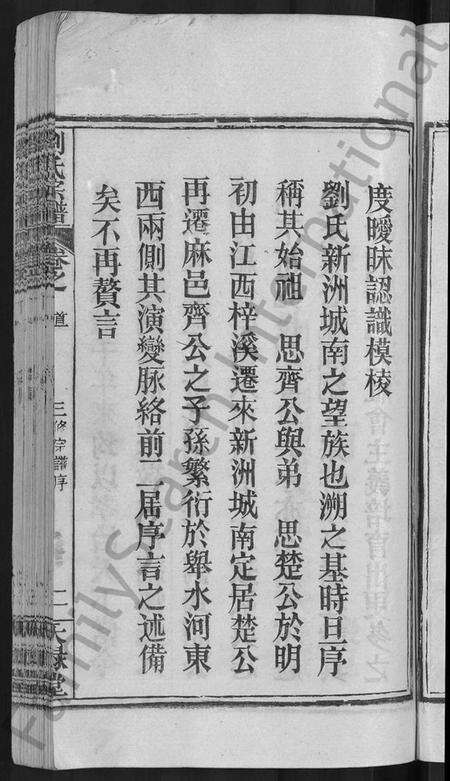 度曖昧認識模棱
劉氏新洲城南之望族也溯之基時旦序
稱其始祖 思齊公與弟 思楚公於明
初由江西梓溪遷來新洲城南定居楚公
再遷麻邑齊公之子孫繁衍於舉水河東
西兩側其演變脉絡前二屆序言之述備
矣不再贅言
劉氏宗譜
卷之
首
三修宗譜序
二
天祿堂
FamilySearch International